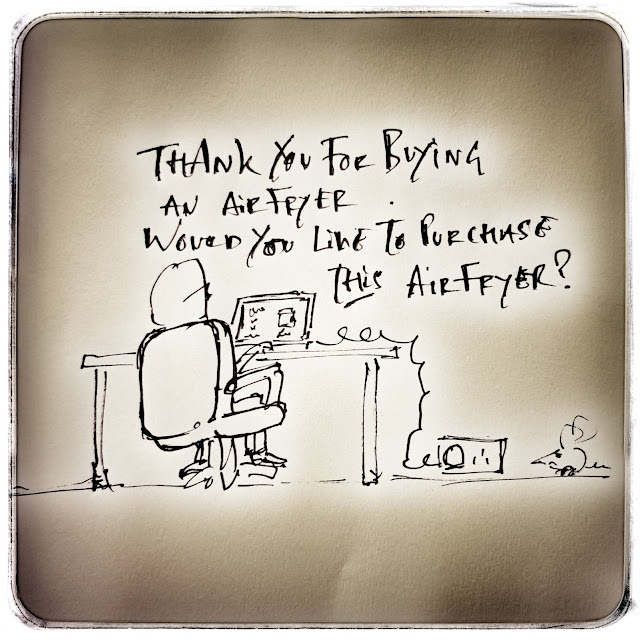 THANK YOU FOR BUYING
AN AIRFRYER.
WOULD YOU LIKE TO PURCHASE
THIS AIRFRYER?